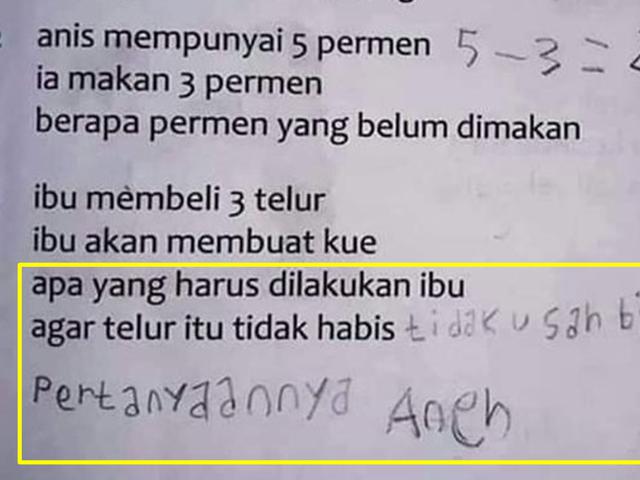 anis mempunyai 5 permen 5 - 3 =
ia makan 3 permen
berapa permen yang belum dimakan
ibu membeli 3 telur
ibu akan membuat kue
apa yang harus dilakukan ibu
agar telur itu tidak habis tidak usah
Pertanyaannya Aneh